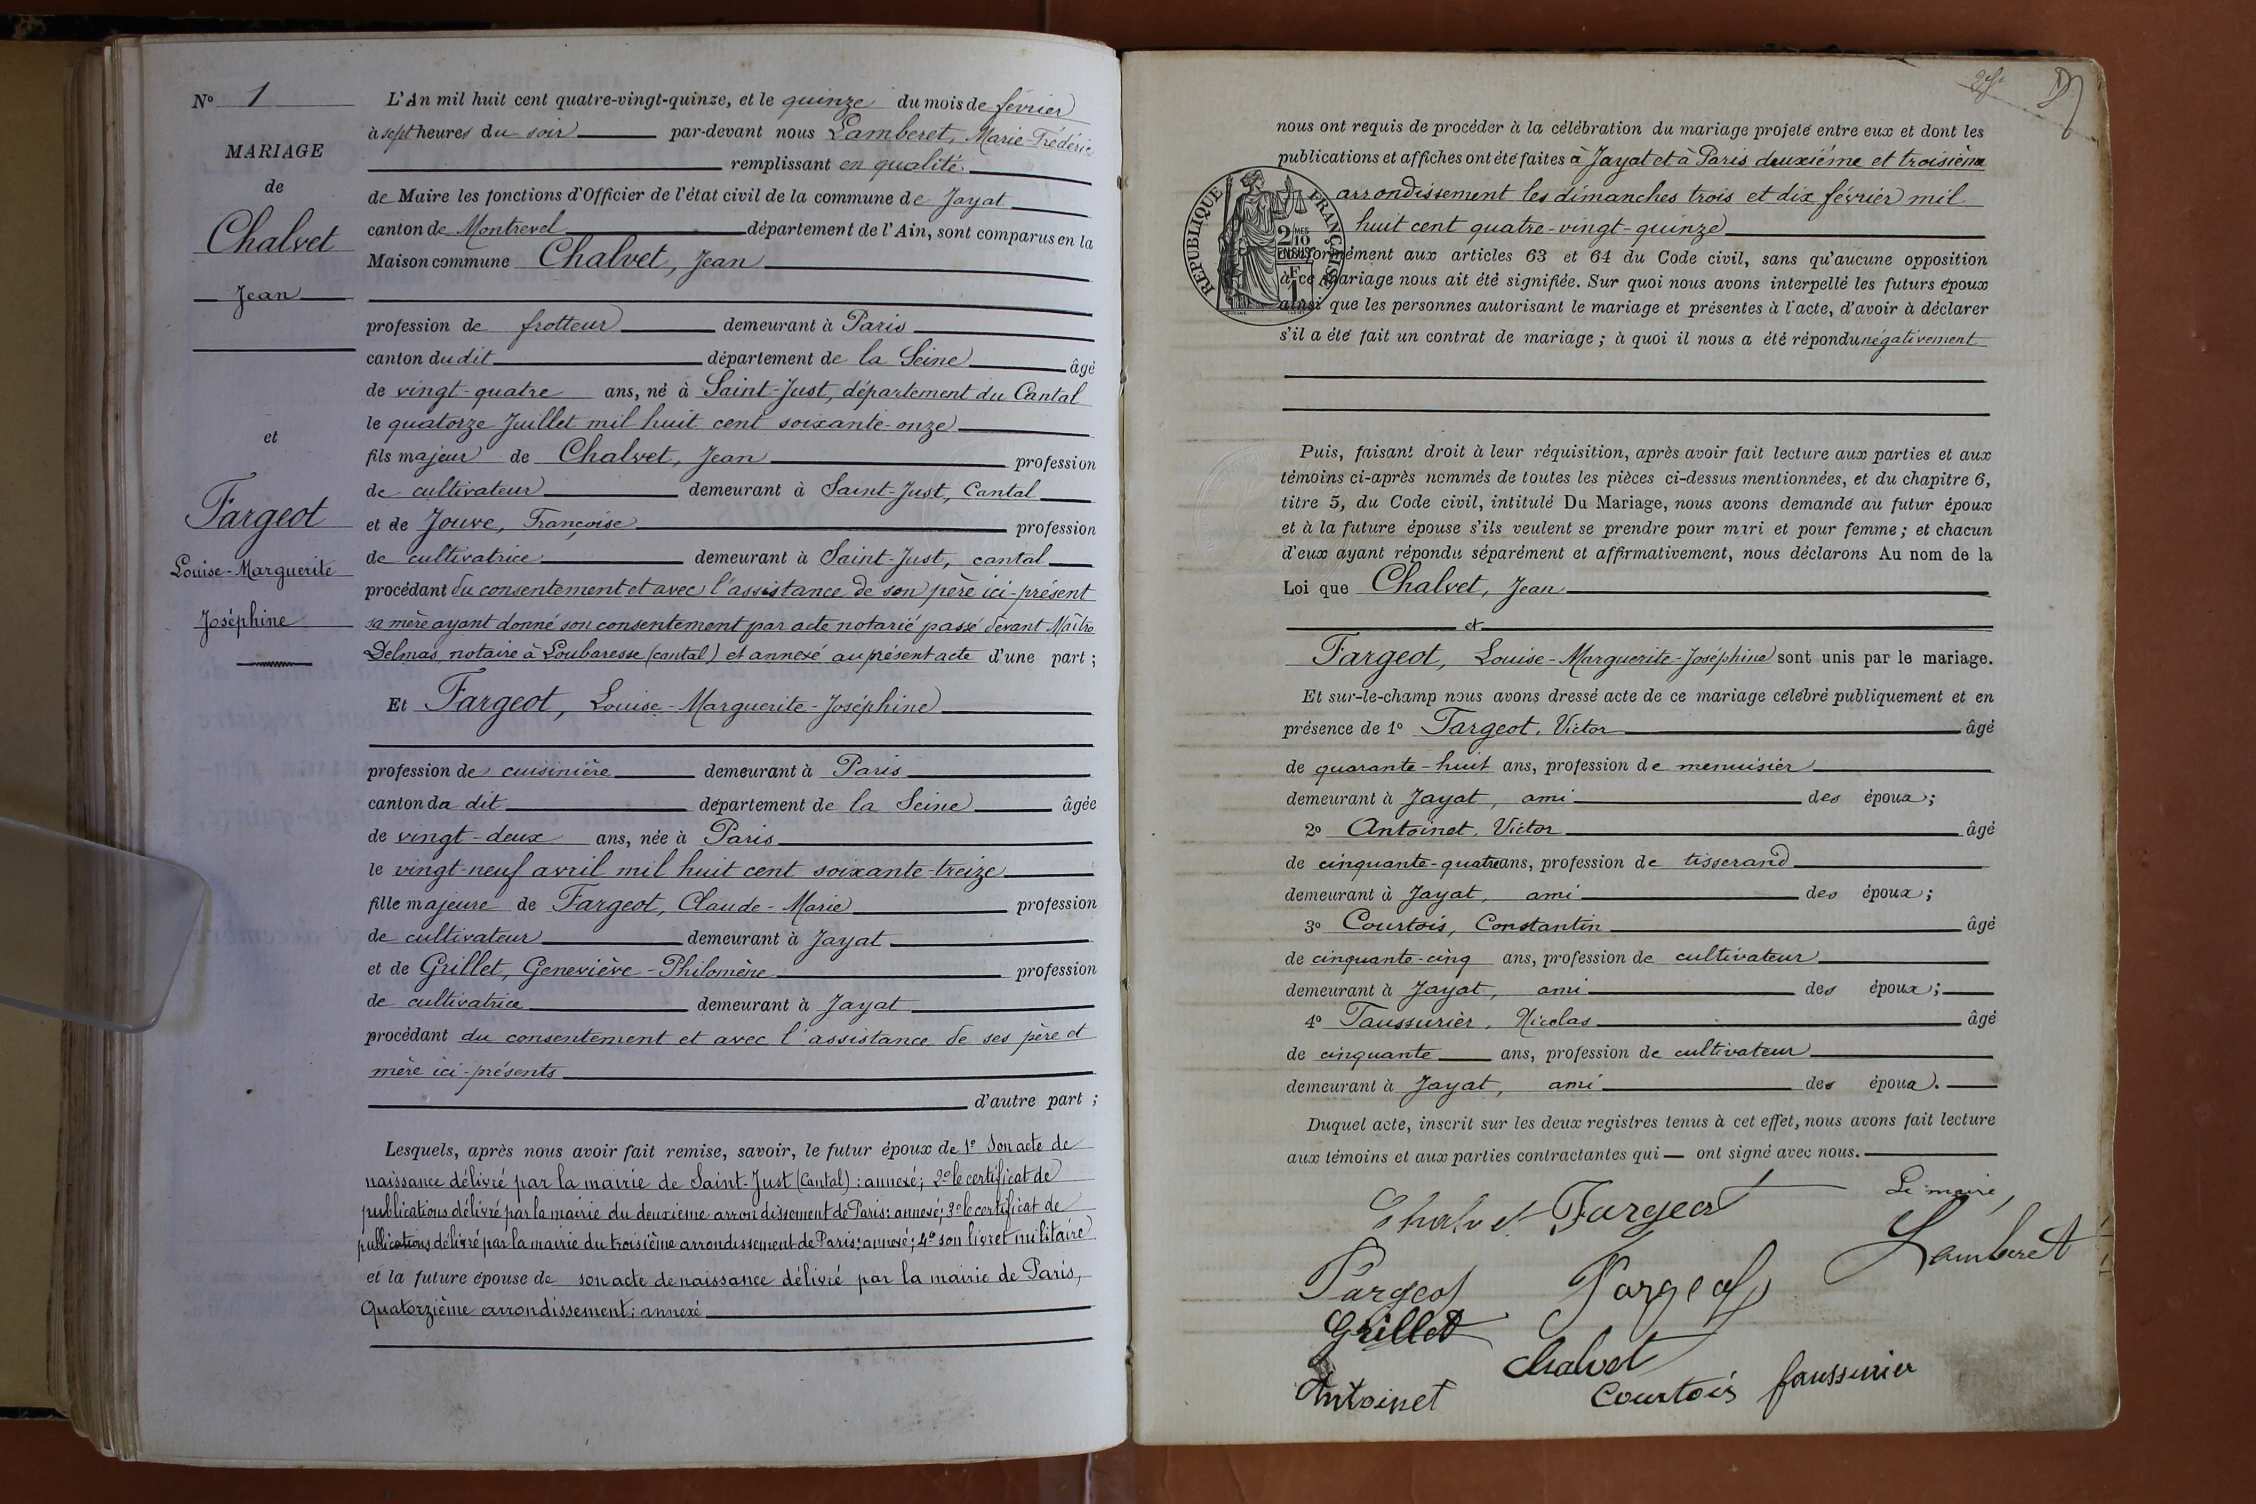 Nº 1
MARIAGE
de
Chalvet
Jean
et
Fargeot
Louise-Marguerite
Joséphine
L'An mil huit cent quatre-vingt-quinze, et le quinze du mois de février
à sept heures du soir par-devant nous Lamberet, Marie-Frédéric
remplissant en qualité
de Maire les fonctions d'Officier de l'état civil de la commune de Jayat
canton de Montrevel département de l'Ain, sont comparus en la
Maison commune Chalvet, Jean
profession de frotteur demeurant à Paris
canton du dit département de la Seine âgé
de vingt-quatre ans, né à Saint-Just, département du Cantal
le quatorze Juillet mil huit cent soixante-onze
fils majeur de Chalvet, Jean profession
de cultivateur demeurant à Saint-Just, Cantal
et de Jouve, Françoise profession
de cultivatrice demeurant à Saint-Just, cantal
procédant du consentement et avec l'assistance de son père ici-présent
sa mère ayant donné son consentement par acte notarié passé devant Maître
Delmas, notaire à Loubaresse (cantal) et annexé au présent acte d'une part ;
Et Fargeot, Louise-Marguerite-Joséphine
profession de cuisinière demeurant à Paris
canton du dit département de la Seine âgée
de vingt-deux ans, née à Paris
le vingt-neuf avril mil huit cent soixante-treize
fille majeure de Fargeot, Claude-Marie profession
de cultivateur demeurant à Jayat
et de Grillet, Geneviève-Philomène profession
de cultivatrice demeurant à Jayat
procédant du consentement et avec l'assistance de ses père et
mère ici-présents
d'autre part ;
Lesquels, après nous avoir fait remise, savoir, le futur époux de 1º Son acte de
naissance délivré par la mairie de Saint-Just (Cantal) : annexé ; 2º le certificat de
publications délivré par la mairie du deuxième arrondissement de Paris : annexé ; 3º le certificat de
publications délivré par la mairie du troisième arrondissement de Paris : annexé ; 4º son livret militaire
et la future épouse de son acte de naissance délivré par la mairie de Paris,
Quatorzième arrondissement : annexé
nous ont requis de procéder à la célébration du mariage projeté entre eux et dont les
publications et affiches ont été faites à Jayat et à Paris deuxième et troisième
arrondissement les dimanches trois et dix février mil
huit cent quatre-vingt-quinze
RÉPUBLIQUE FRANÇAISE
2/10 EN SUS
conformément aux articles 63 et 64 du Code civil, sans qu'aucune opposition
à ce mariage nous ait été signifiée. Sur quoi nous avons interpellé les futurs époux
ainsi que les personnes autorisant le mariage et présentes à l'acte, d'avoir à déclarer
s'il a été fait un contrat de mariage ; à quoi il nous a été répondu négativement
Puis, faisant droit à leur réquisition, après avoir fait lecture aux parties et aux
témoins ci-après nommés de toutes les pièces ci-dessus mentionnées, et du chapitre 6,
titre 5, du Code civil, intitulé Du Mariage, nous avons demandé au futur époux
et à la future épouse s'ils veulent se prendre pour mari et pour femme ; et chacun
d'eux ayant répondu séparément et affirmativement, nous déclarons Au nom de la
Loi que Chalvet, Jean
et
Fargeot, Louise-Marguerite-Joséphine sont unis par le mariage.
Et sur-le-champ nous avons dressé acte de ce mariage célébré publiquement et en
présence de 1º Fargeot, Victor âgé
de quarante-huit ans, profession de menuisier
demeurant à Jayat, ami des époux ;
2º Antoinet, Victor âgé
de cinquante-quatre ans, profession de tisserand
demeurant à Jayat, ami des époux ;
3º Courtois, Constantin âgé
de cinquante-cinq ans, profession de cultivateur
demeurant à Jayat, ami des époux ;
4º Taussurier, Nicolas âgé
de cinquante ans, profession de cultivateur
demeurant à Jayat, ami des époux.
Duquel acte, inscrit sur les deux registres tenus à cet effet, nous avons fait lecture
aux témoins et aux parties contractantes qui ont signé avec nous.
Chalvet Fargeot Le maire,
Lamberet
Fargeot Fargeot
Grillet
Chalvet
Antoinet Courtois faussurier